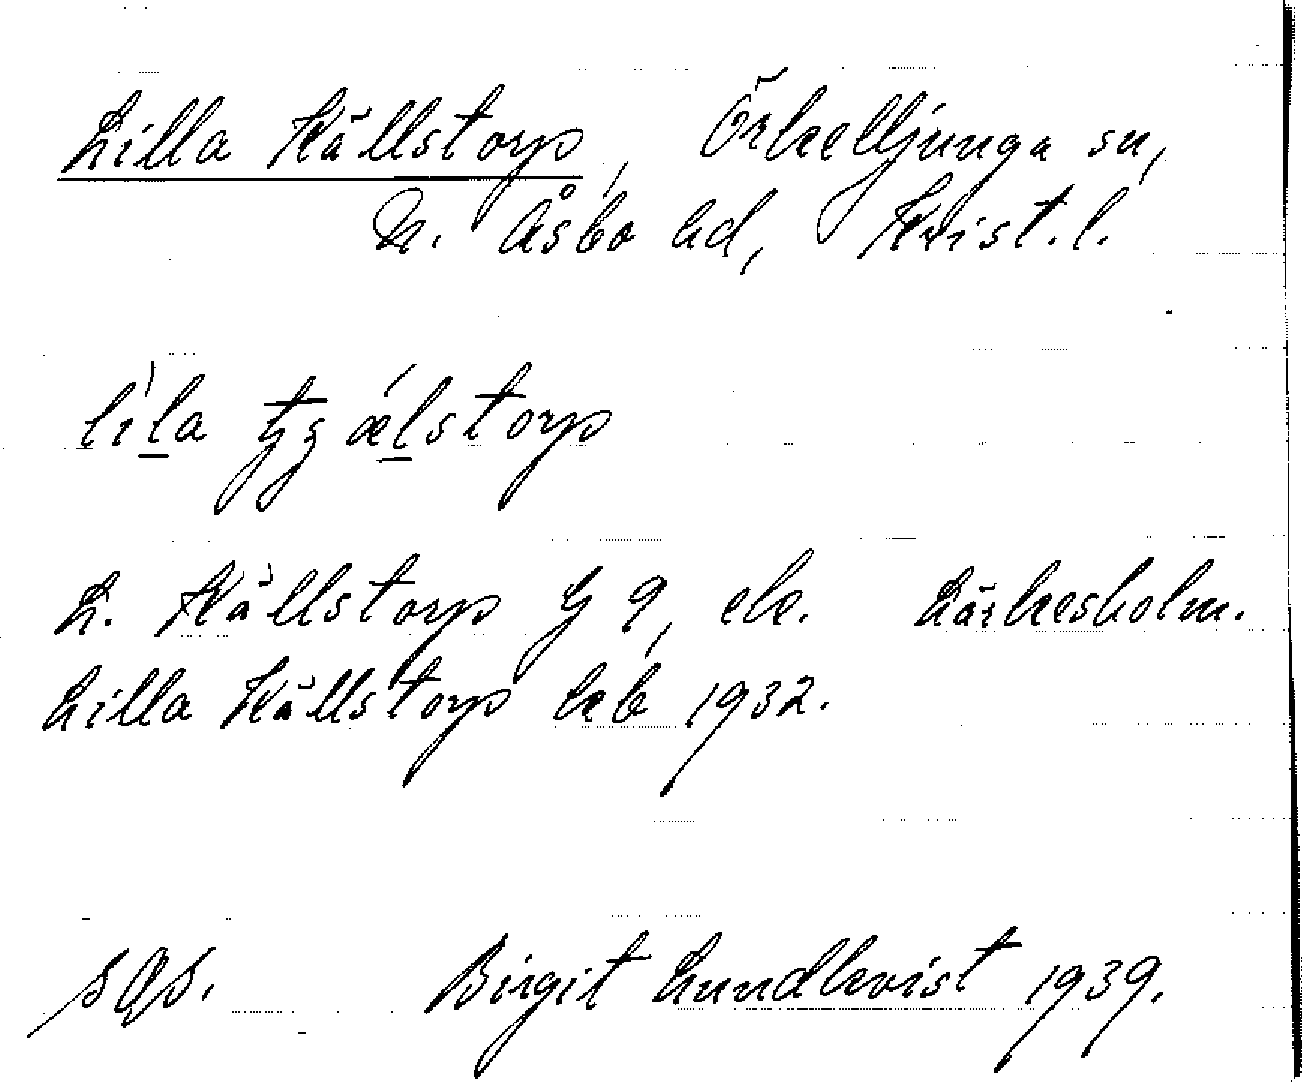 Lilla Källstorp, Örkelljunga sn,
N. Åsbo hd, Krist. l.
líl̲a tʒǽl̲storp
L. Källstorp G 9, ek. Lärkesholm.
Lilla Källstorp kb 1932.
Birgit Lundkvist 1939.